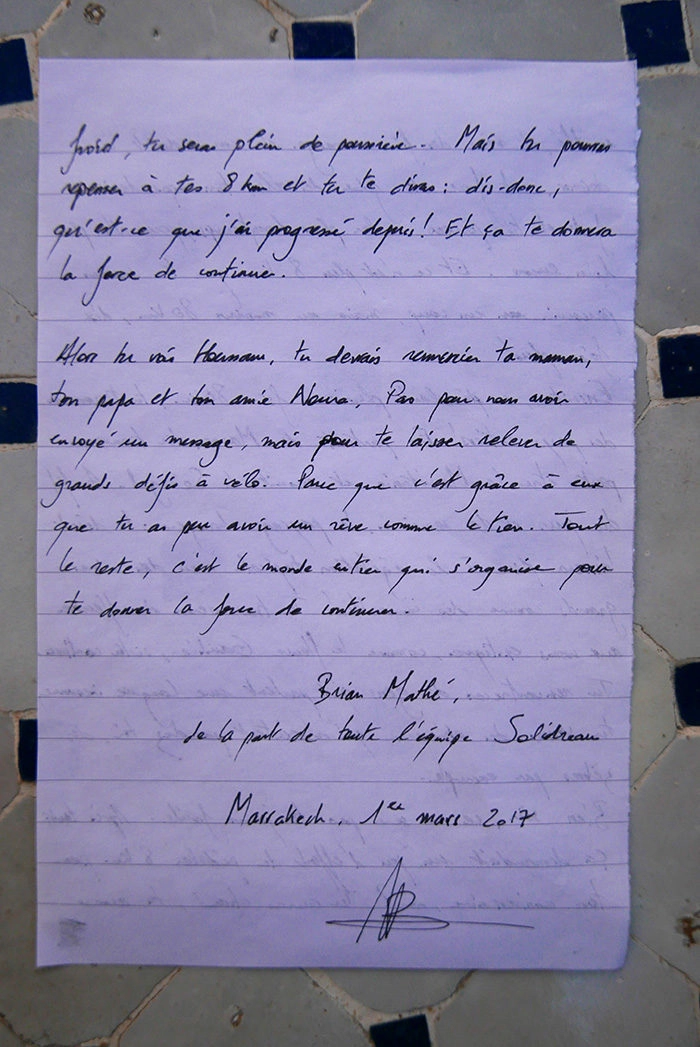 froid, tu seras plein de poussière. Mais tu pourras
repenser à tes 8 km et tu te diras : dis-donc,
qu'est-ce que j'ai progressé depuis ! Et ça te donnera
la force de continuer.
Alors tu vois, tu devrais remercier ta maman,
ton papa et ton amie Noura. Pas pour nous avoir
envoyé un message, mais pour te laisser relever de
grands défis à vélo. Parce que c'est grâce à eux
que tu as pu avoir un rêve comme le tien. Tout
le reste, c'est le monde entier qui s'organise pour
te donner la force de continuer.
Brian Mathé,
de la part de toute l'équipe Solidreau
Marrakech, 1er mars 2017